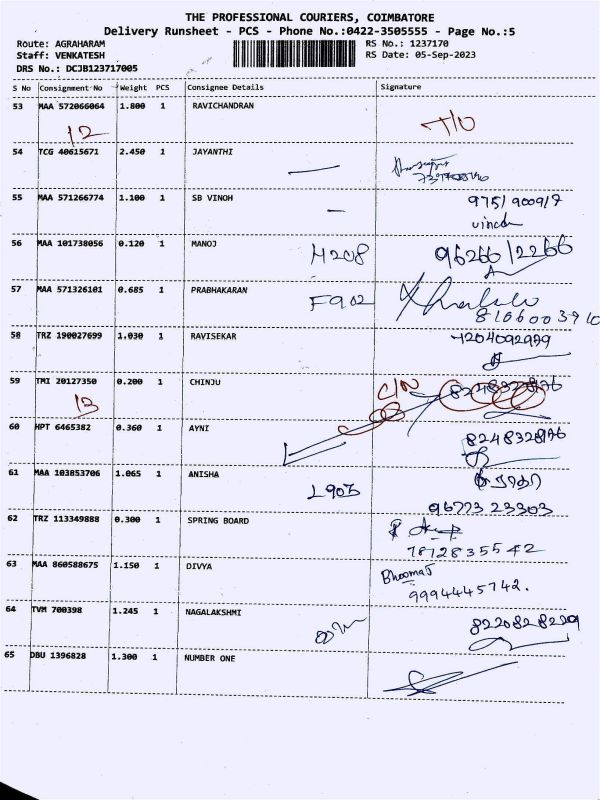 THE PROFESSIONAL COURIERS, COIMBATORE
Delivery Runsheet - PCS - Phone No.:0422-3505555 - Page No.:5
Route: AGRAHARAM RS No.: 1237170
Staff: VENKATESH RS Date: 05-Sep-2023
DRS No.: DCJB123717005
S No Consignment No Weight PCS Consignee Details Signature
53 MAA 572066064 1.800 1 RAVICHANDRAN
12 T/O
54 TCG 40615671 2.450 1 JAYANTHI
55 MAA 571266774 1.100 1 SB VINOH
vinoh
56 MAA 101738056 0.120 1 MANOJ H208 96266 12266
57 MAA 571326101 0.685 1 PRABHAKARAN F902
8106003910
58 TRZ 190027699 1.030 1 RAVISEKAR
59 TMI 20127350 0.200 1 CHINJU C/N
13
60 HPT 6465382 0.360 1 AYNI 8248328176
61 MAA 103853706 1.065 1 ANISHA L903
96773 23303
62 TRZ 113349888 0.300 1 SPRING BOARD
7812835542
63 MAA 860588675 1.150 1 DIVYA Bhoomat
9994445742.
64 TVM 700398 1.245 1 NAGALAKSHMI 8220828229
65 DBU 1396828 1.300 1 NUMBER ONE